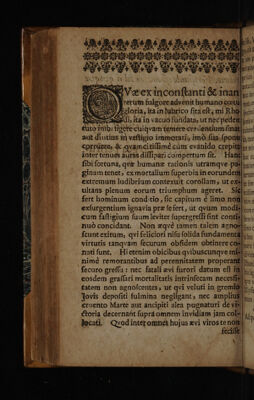 QVæ ex inconstanti & inani
rerum fulgore advenit humano cœtui
gloria, ita in lubrico sita est, mi Rho
di, ita in vacuo fundata, ut nec pedem
tuto imbi figere cuiquam temere credendum sit
aut diutius in vestigio immorari, imò suâ sponte
corruere, & quam citissimè cum evanido crepitu
inter tenues auras dissipari compertum sit. Has
sibi fortuna, quæ humanæ rationis utramque pa-
ginam tenet, ex mortalium superbia in eorundem
extremum ludibrium contexuit corollam, ut ex-
uitans plenum eorum triumphum ageret. Sic
fert hominum conditio, ut capitum è limo non
exsurgentium ignavia præ se fert, ut quum modi-
cum fastigium suum leviter supergressi sint conti-
nuò concidant. Non æquè tamen talem agno-
scunt exitum, qui feliciori nisu solida fundamenta
virtutis tanquam securum obsidem obtinere co-
nati sunt. Hi etenim obicibus quibuscunque mi-
nimè remorantibus ad perennitatem properant
securo gressu: nec fatali ævi furori datum est in
eosdem grassari mortalitatis intrinsecam necessi-
tatem non agnoscentes, ut qui veluti in gremio
Jovis depositi fulmina negligant, nec amplius
cruento Marte aut ancipiti alea pugnaturi de vi-
ctoria decernant suprà omnem invidiam jam col-
locati. Qvod inter omnes hujus ævi viros te non
fecisse